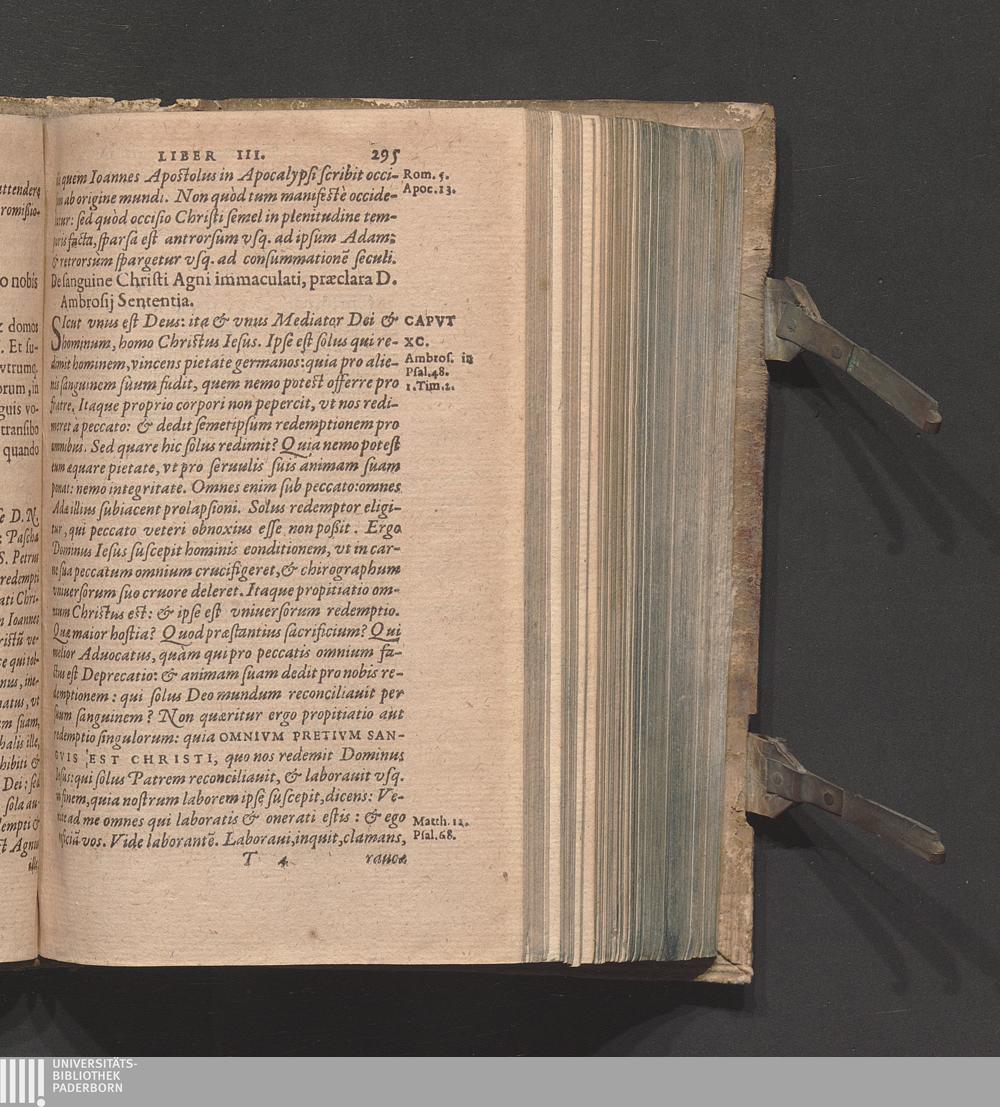 LIBER III. 295
quem Ioannes Apostolus in Apocalypsi scribit occi-
ab origine mundi. Non quòd tum manifestè occide-
sed quòd occisio Christi semel in plenitudine tem-
facta, sparsa est antrorsum vsq. ad ipsum Adam:
& retrorsum spargetur vsq. ad consummationē seculi.
Rom. 5.
Apoc. 13.
De sanguine Christi Agni immaculati, præclara D.
Ambrosij Sententia.
SIcut vnus est Deus: ita & vnus Mediator Dei &
hominum, homo Christus Iesus. Ipse est solus qui re-
dimit hominem, vincens pietate germanos: quia pro alie-
nis sanguinem suum fudit, quem nemo potest offerre pro
fratre. Itaque proprio corpori non pepercit, vt nos redi-
meret à peccato: & dedit semetipsum redemptionem pro
omnibus. Sed quare hic solus redimit? Quia nemo potest
eum æquare pietate, vt pro seruulis suis animam suam
ponat: nemo integritate. Omnes enim sub peccato: omnes
Adæ illius subiacent prolapsioni. Solus redemptor eligi-
tur, qui peccato veteri obnoxius esse non possit. Ergo
Dominus Iesus suscepit hominis eonditionem, vt in car-
ne sua peccatum omnium crucifigeret, & chirographum
vniuersorum suo cruore deleret. Itaque propitiatio om-
nium Christus est: & ipse est vniuersorum redemptio.
Quæ maior hostia? Quod præstantius sacrificium? Qui
melior Aduocatus, quàm qui pro peccatis omnium fa-
ctus est Deprecatio: & animam suam dedit pro nobis re-
demptionem: qui solus Deo mundum reconciliauit per
suum sanguinem? Non quæritur ergo propitiatio aut
redemptio singulorum: quia OMNIVM PRETIVM SAN-
GVIS EST CHRISTI, quo nos redemit Dominus
Iesus: qui solus Patrem reconciliauit, & laborauit vsq.
in finem, quia nostrum laborem ipse suscepit, dicens: Ve-
nite ad me omnes qui laboratis & onerati estis: & ego
reficiā vos. Vide laborantē. Laboraui, inquit, clamans,
CAPVT
XC.
Ambros. in
Psal. 48.
1. Tim. 2.
Matth. 12.
Psal. 68.
T 4 rauca
attendere
romissio-
o nobis
domos
Et su-
vtrumq.
orum, in
guis vo-
transibo
quando
D. N.
Pascha
S. Petrus
redempti
ati Chri-
Ioannes
ristū ve-
ce qui tol-
nus, im-
natus, vt
em suam,
halis ille,
hibiti &
Dei: sed
sola au-
empti &
st Agnus
ille
UNIVERSITÄTS-
BIBLIOTHEK
PADERBORN